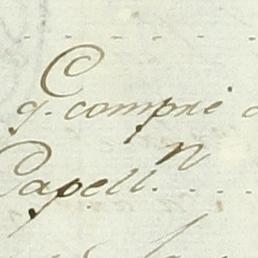 C
q. compré
Capell.n